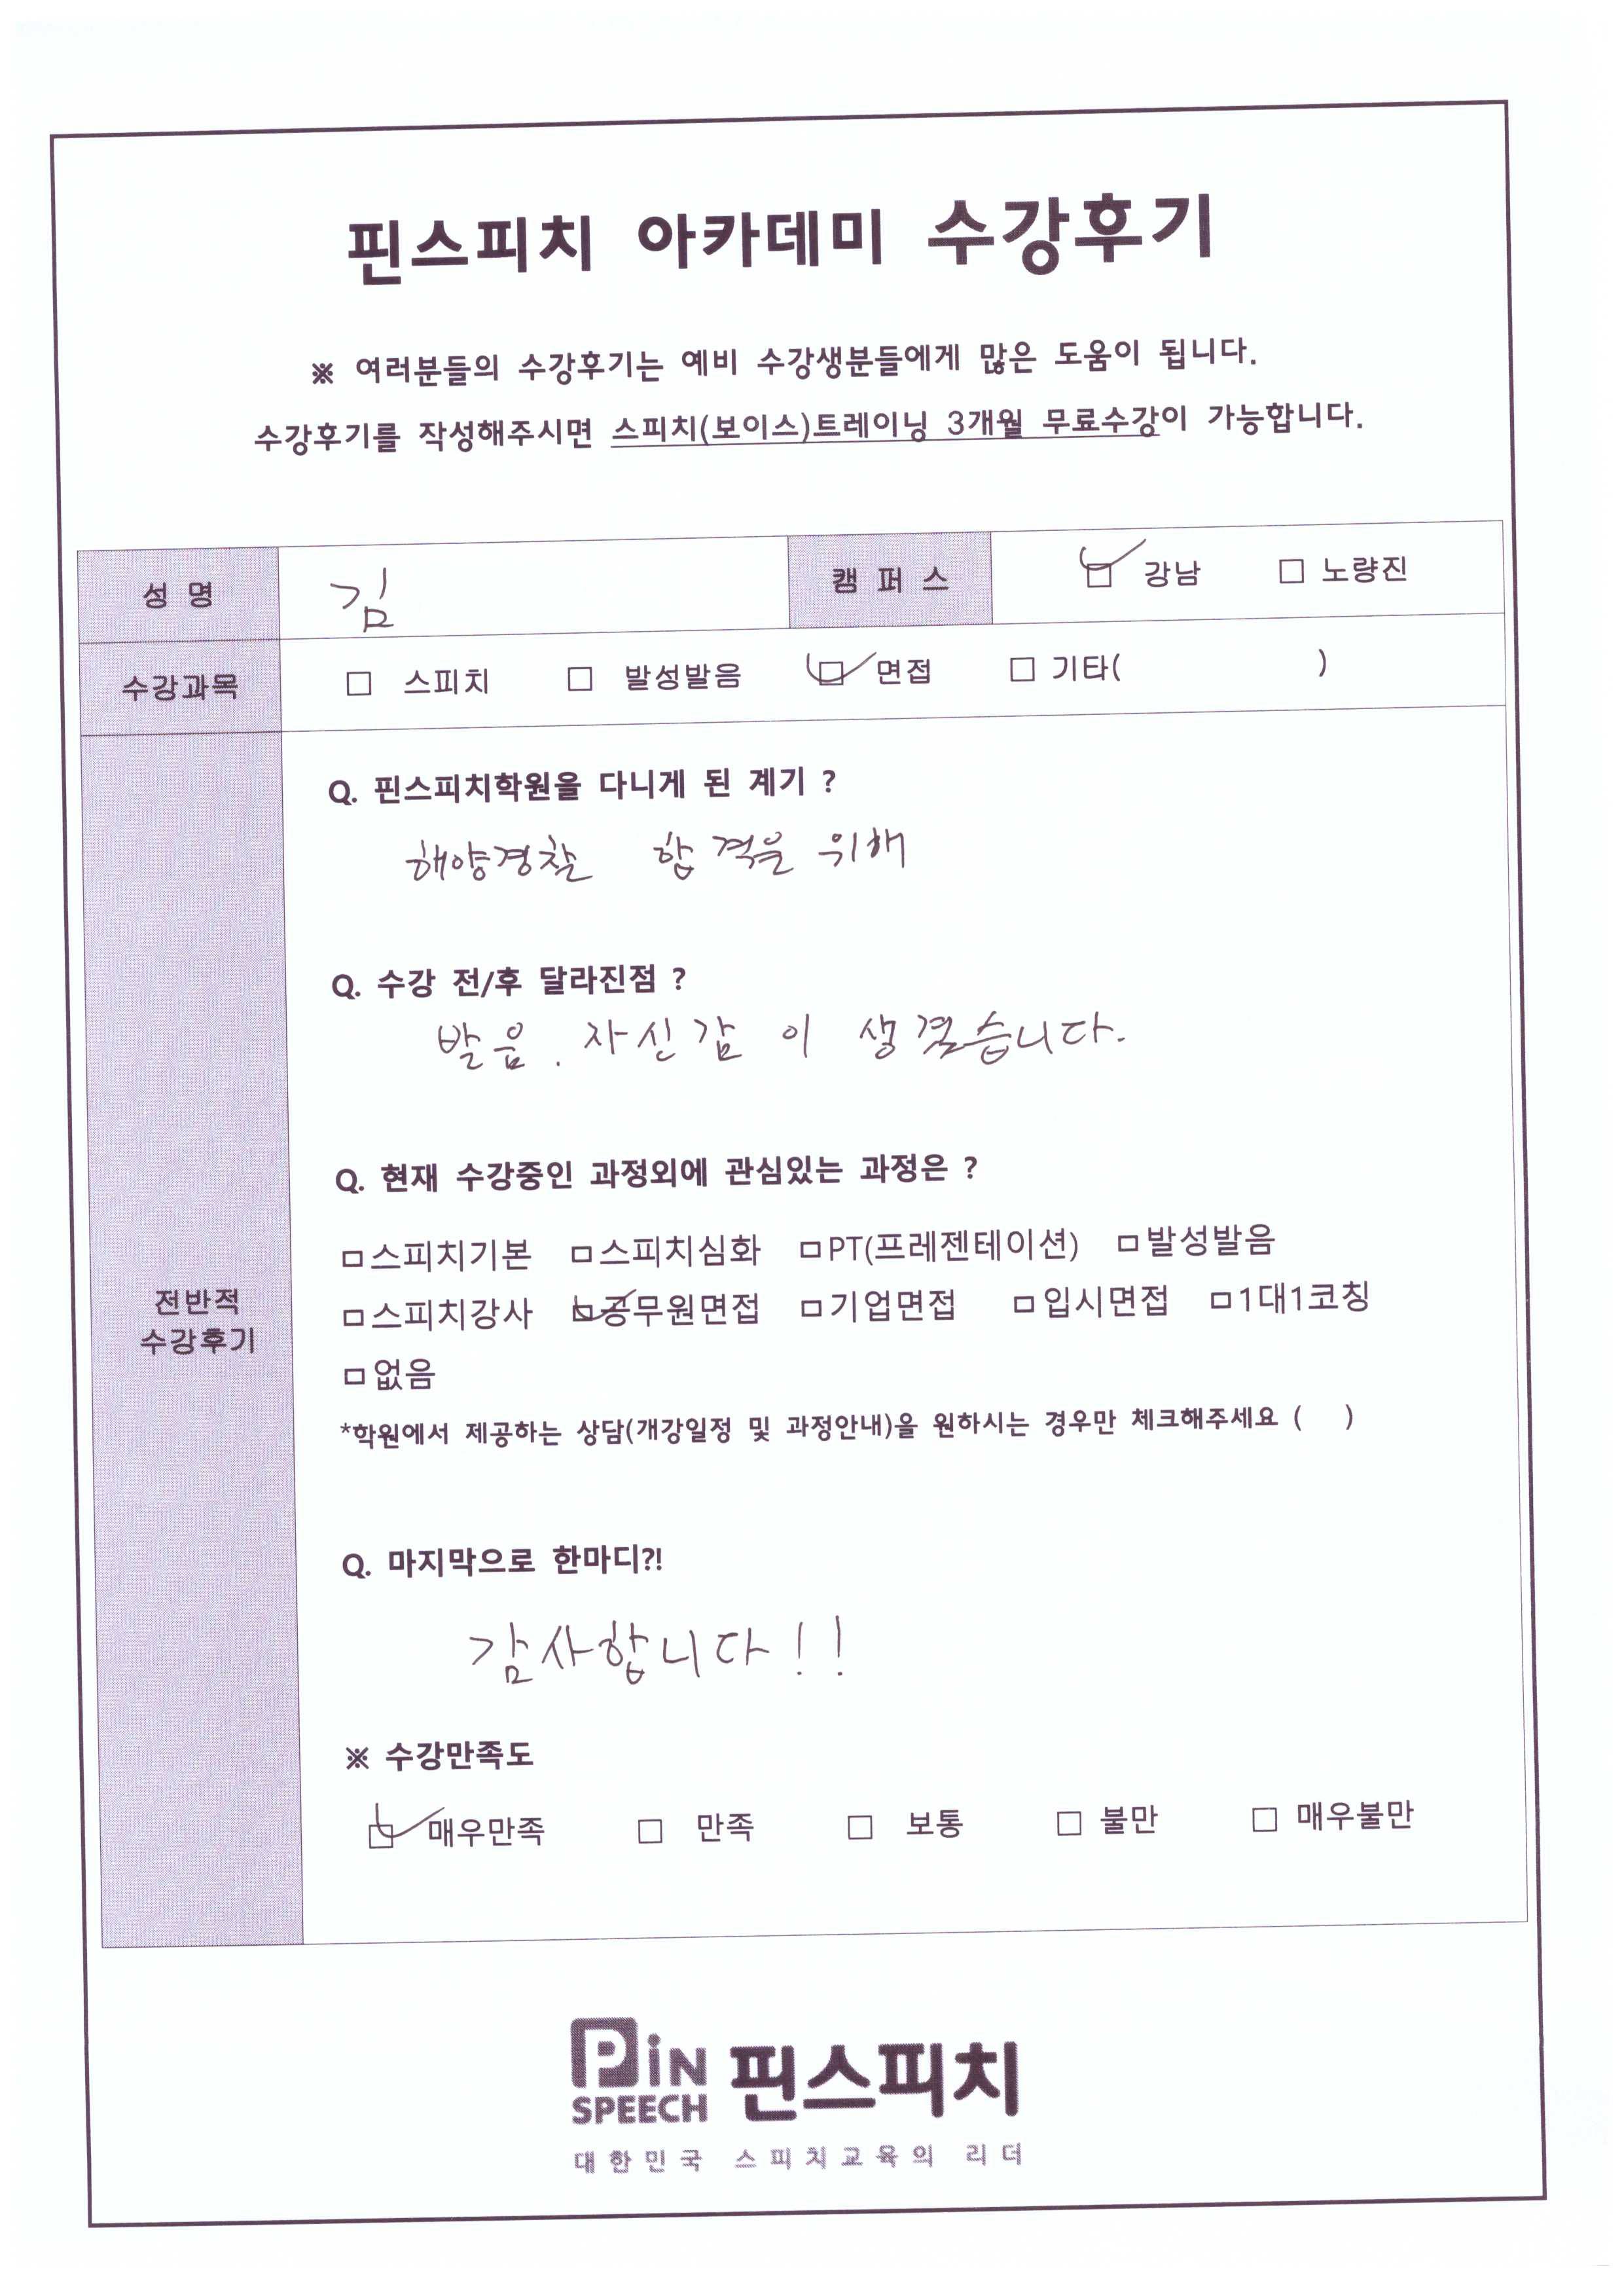 핀스피치 아카데미 수강후기
※ 여러분들의 수강후기는 예비 수강생분들에게 많은 도움이 됩니다.
수강후기를 작성해주시면 스피치(보이스)트레이닝 3개월 무료수강이 가능합니다.
성 명 김 캠 퍼 스 ☑ 강남 □ 노량진
수강과목 □ 스피치 □ 발성발음 ☑ 면접 □ 기타( )
Q. 핀스피치학원을 다니게 된 계기 ?
해양경찰 합격을 위해
Q. 수강 전/후 달라진점 ?
발음. 자신감이 생겼습니다.
Q. 현재 수강중인 과정외에 관심있는 과정은 ?
□스피치기본 □스피치심화 □PT(프레젠테이션) □발성발음
□스피치강사 ☑공무원면접 □기업면접 □입시면접 □1대1코칭
□없음
*학원에서 제공하는 상담(개강일정 및 과정안내)을 원하시는 경우만 체크해주세요 ( )
전반적
수강후기
Q. 마지막으로 한마디?!
감사합니다!!
※ 수강만족도
☑ 매우만족 □ 만족 □ 보통 □ 불만 □ 매우불만
PiN
SPEECH 핀스피치
대한민국 스피치교육의 리더